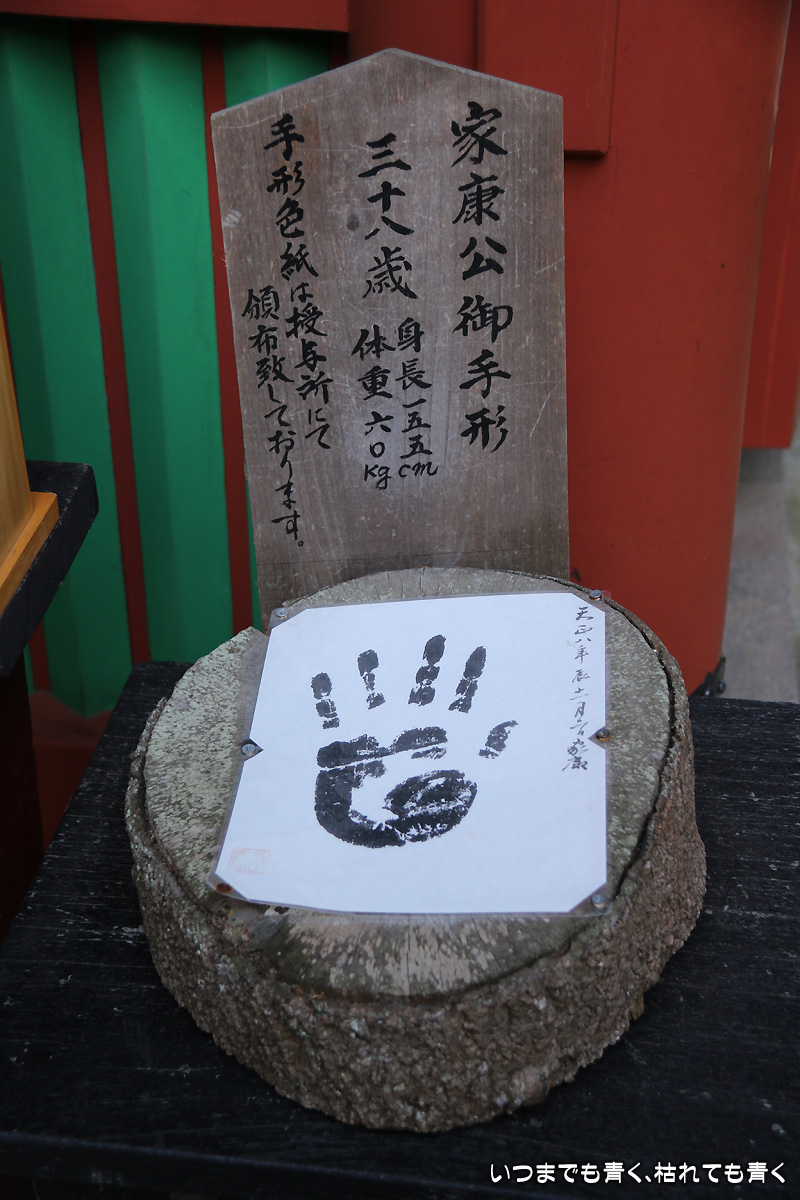 家康公御手形
三十八歳
身長一五五cm
体重六〇kg
手形色紙は授与所にて
頒布致しております。
天正八年辰十一月六日家康
いつまでも青く、枯れても青く